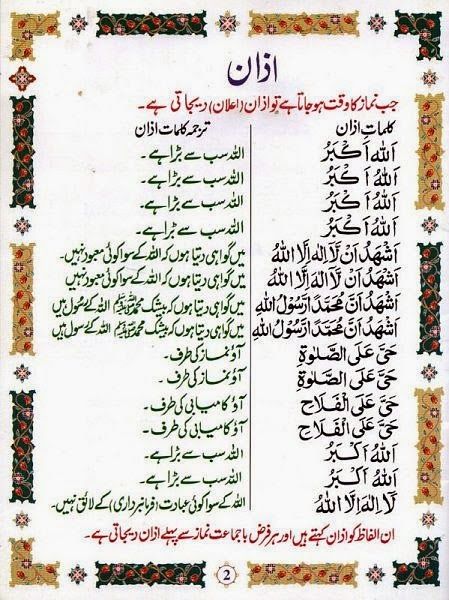 اذان
جب نماز کا وقت ہو جاتا ہے تو اذان (اعلان) دیجاتی ہے۔
کلمات اذان ترجمہ کلمات اذان
اَللهُ اَكْبَرُ اللہ سب سے بڑا ہے۔
اَللهُ اَكْبَرُ اللہ سب سے بڑا ہے۔
اَللهُ اَكْبَرُ اللہ سب سے بڑا ہے۔
اَللهُ اَكْبَرُ اللہ سب سے بڑا ہے۔
اَشْهَدُ اَنْ لَّا اِلٰهَ اِلَّا اللهُ میں گواہی دیتا ہوں کہ اللہ کے سوا کوئی معبود نہیں۔
اَشْهَدُ اَنْ لَّا اِلٰهَ اِلَّا اللهُ میں گواہی دیتا ہوں کہ اللہ کے سوا کوئی معبود نہیں۔
اَشْهَدُ اَنَّ مُحَمَّدًا رَّسُوْلُ اللهِ میں گواہی دیتا ہوں کہ بیشک محمد ﷺ اللہ کے رسول ہیں
اَشْهَدُ اَنَّ مُحَمَّدًا رَّسُوْلُ اللهِ میں گواہی دیتا ہوں کہ بیشک محمد ﷺ اللہ کے رسول ہیں۔
حَیَّ عَلَی الصَّلٰوةِ آؤ نماز کی طرف۔
حَیَّ عَلَی الصَّلٰوةِ آؤ نماز کی طرف۔
حَیَّ عَلَی الْفَلَاحِ آؤ کامیابی کی طرف۔
حَیَّ عَلَی الْفَلَاحِ آؤ کامیابی کی طرف۔
اَللهُ اَكْبَرُ اللہ سب سے بڑا ہے۔
اَللهُ اَكْبَرُ اللہ سب سے بڑا ہے۔
لَا اِلٰهَ اِلَّا اللهُ اللہ کے سوا کوئی عبادت (فرمانبرداری) کے لائق نہیں۔
ان الفاظ کو اذان کہتے ہیں اور ہر فرض با جماعت نماز سے پہلے اذان دیجاتی ہے۔
2